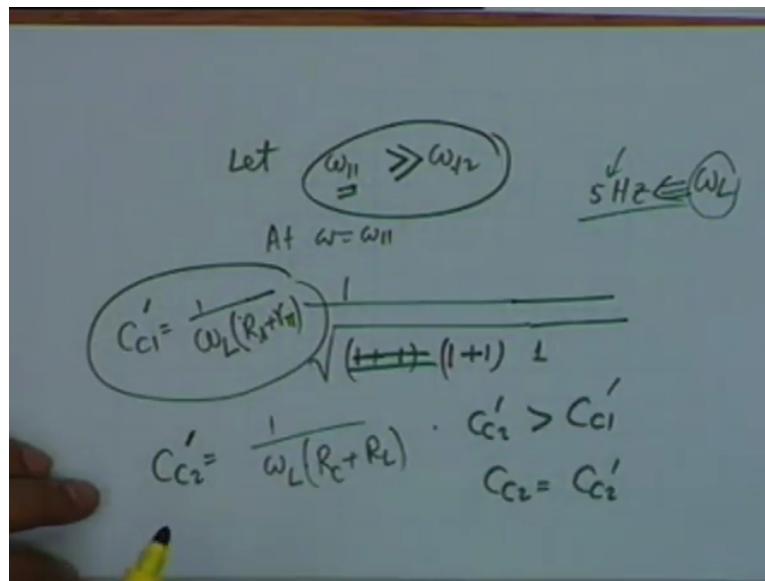 Let ω11 >> ω12
5 Hz ⇐ ωL
At ω = ω11
1
C'C1 = 1 / ωL(Rs+rπ)
√ (1+1) (1+1) 1
C'C2 = 1 / ωL(RC + RL) . C'C2 > C'C1
CC2 = C'C2